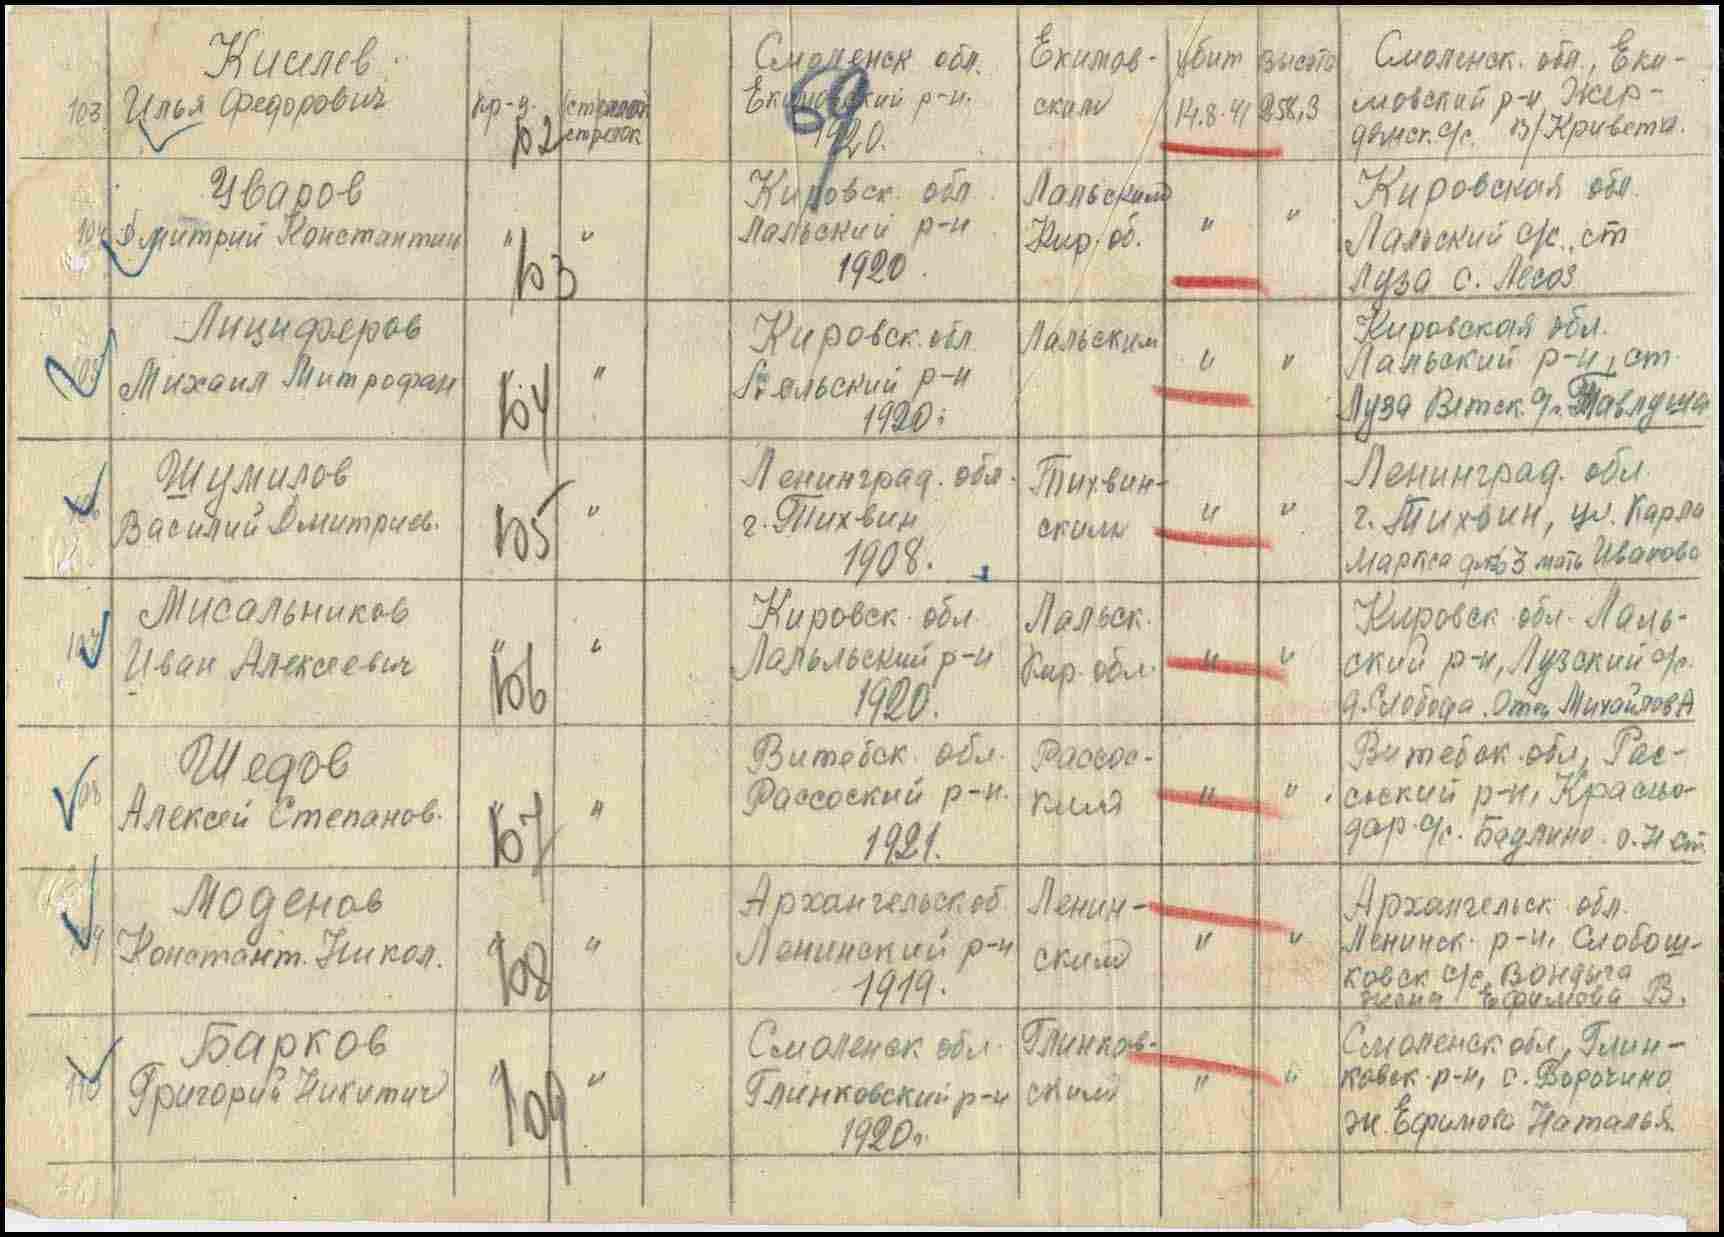 Киселев
103 Илья Федорович
кр-ц.
102
стрелок
Смоленск обл.
Екимовский р-н.
1920.
69
Екимов-
ским
убит
14.8.41
высота
258,3
Смоленск. обл., Еки-
мовский р-н,
с/с.
Уваров
104 Дмитрий Константин
" 103 "
Кировск. обл.
Лальский р-н
1920.
Лальским
Кир. об.
" "
Кировская обл.
Лальский с/с., ст
Луза с. Лесоз
Лициферов
105 Михаил Митрофан
" 104 "
Кировск. обл
р-н
1920.
Лальским
" "
Кировская обл.
Лальский р-н, ст.
Луза
Шумилов
106 Василий Дмитриев.
105 "
Ленинград. обл.
г. Тихвин
1908.
Тихвин-
ским
" "
Ленинград. обл
г. Тихвин, ул. Карла
Маркса 3 мать Иванова
Мисальников
107 Иван Алексеевич
" 106 "
Кировск. обл.
Лальльский р-н
1920.
Лальск.
Кир. обл.
" "
Кировск. обл. Лаль-
ский р-н, Лузский с/с.
д. Слобода. Отец Михайлов А
Шедов
108 Алексей Степанов.
" 107 "
Витебск. обл.
Рассоский р-н.
1921.
Рассос-
ким
" "
Витебск. обл, Рас-
соский р-н,
с/с.
Моденов
109 Констант. Никол.
" 108 "
Архангельск об.
Ленинский р-н
1919.
Ленин-
ским
" "
Архангельск обл.
Ленинск. р-н,
с/с,
Ефимова В.
Барков
110 Григорий Никитич
" 109 "
Смоленск обл.
Глинковский р-н
1920г.
Глинков-
ским
" "
Смоленск обл., Глин-
ковск. р-н, с. Ворочино
ж. Ефимова Наталья.